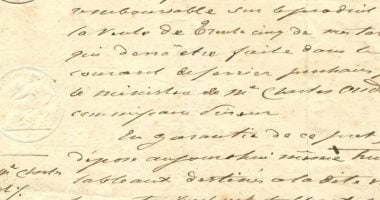 remboursable sur le produit
la vente de Trente cinq de mes ta
qui devra être faite dans le
courant de février prochain
le ministère de Me Charles
commissaire priseur
En garantie de ce prêt
dépose aujourd'hui même
tableaux destinés à la dite v
Me Charles